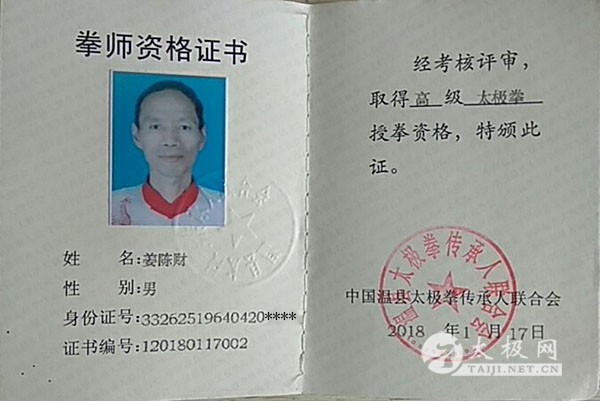 拳师资格证书
姓 名:姜陈财
性 别:男
身份证号:33262519640420****
证书编号:120180117002
经考核评审，
取得高级太极拳
授拳资格，特颁此
证。
中国温县太极拳传承人联合会
2018 年1月17日
温县太极拳传承人联合会
太极网
TAIJI.NET.CN